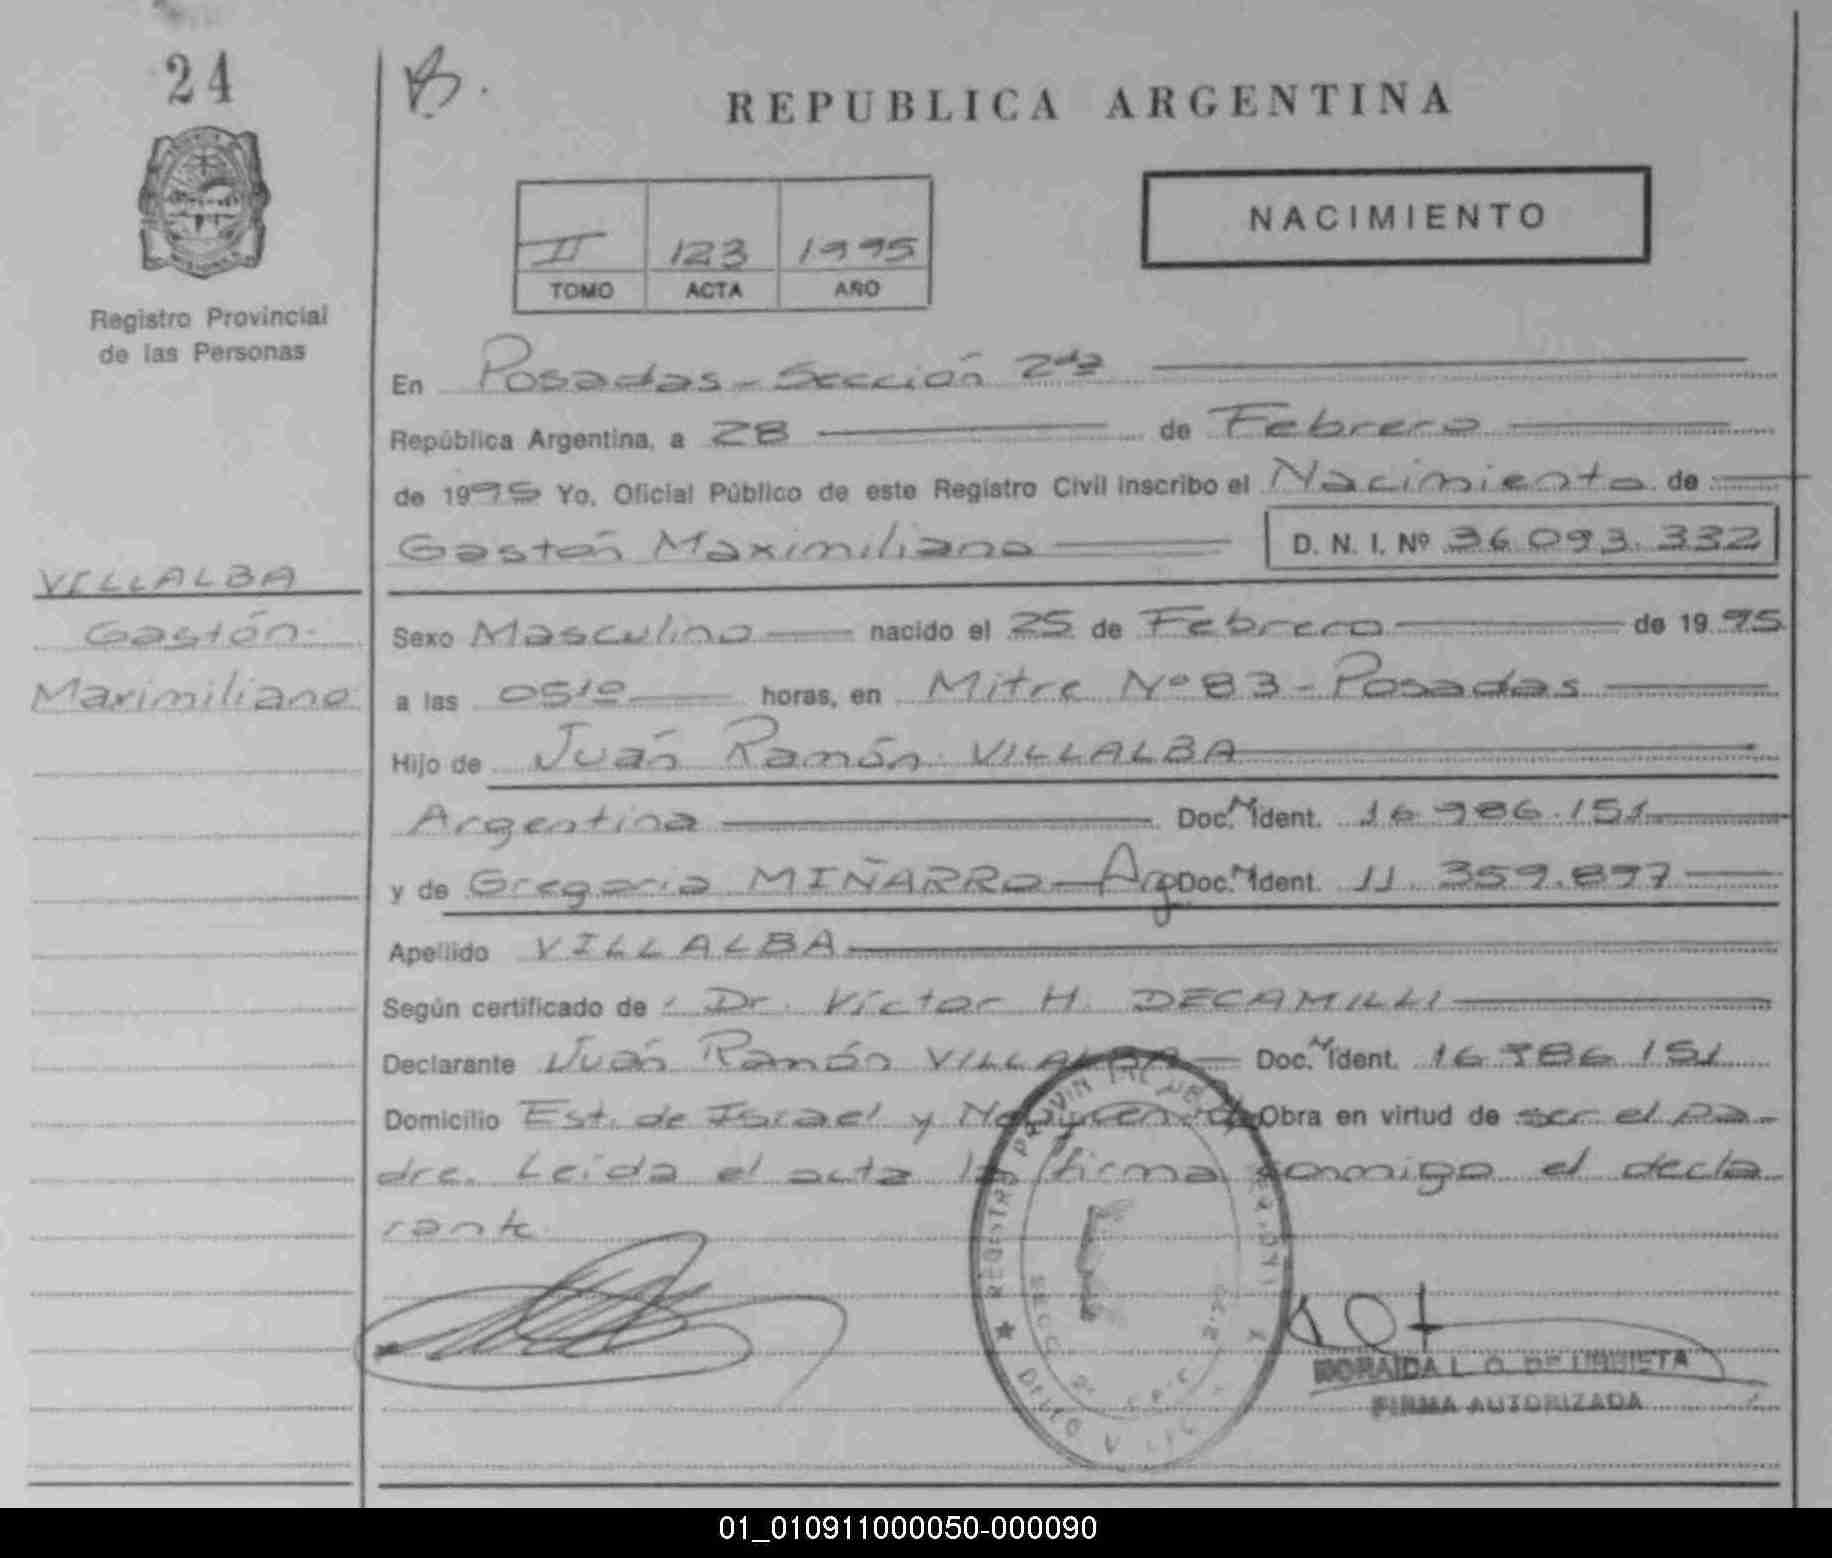 24
REPUBLICA ARGENTINA
NACIMIENTO
II 123 1995
TOMO ACTA AÑO
Registro Provincial
de las Personas
En Posadas - Sección 2da
República Argentina, a 28 de Febrero
de 1995 Yo, Oficial Público de este Registro Civil inscribo el Nacimiento de
Gastón Maximiliano D. N. I. Nº 36.093.332
VILLALBA
Gastón
Maximiliano
Sexo Masculino nacido el 25 de Febrero de 1995
a las 05:10 horas, en Mitre Nº 83 - Posadas
Hijo de Juan Ramón VILLALBA
Argentina Doc. N. Ident. 16.986.151
y de Gregoria MIÑARRO - Arg Doc. N. Ident. 11.359.897
Apellido VILLALBA
Según certificado de Dr. Víctor H. DECAMILLI
Declarante Juan Ramón VILLALBA Doc. N. Ident. 16.986.151
Domicilio Est. de Israel y Obra en virtud de ser el pa-
dre. Leída el acta la firma conmigo el decla
rante
REGISTRO
FIRMA AUTORIZADA
01_010911000050-000090